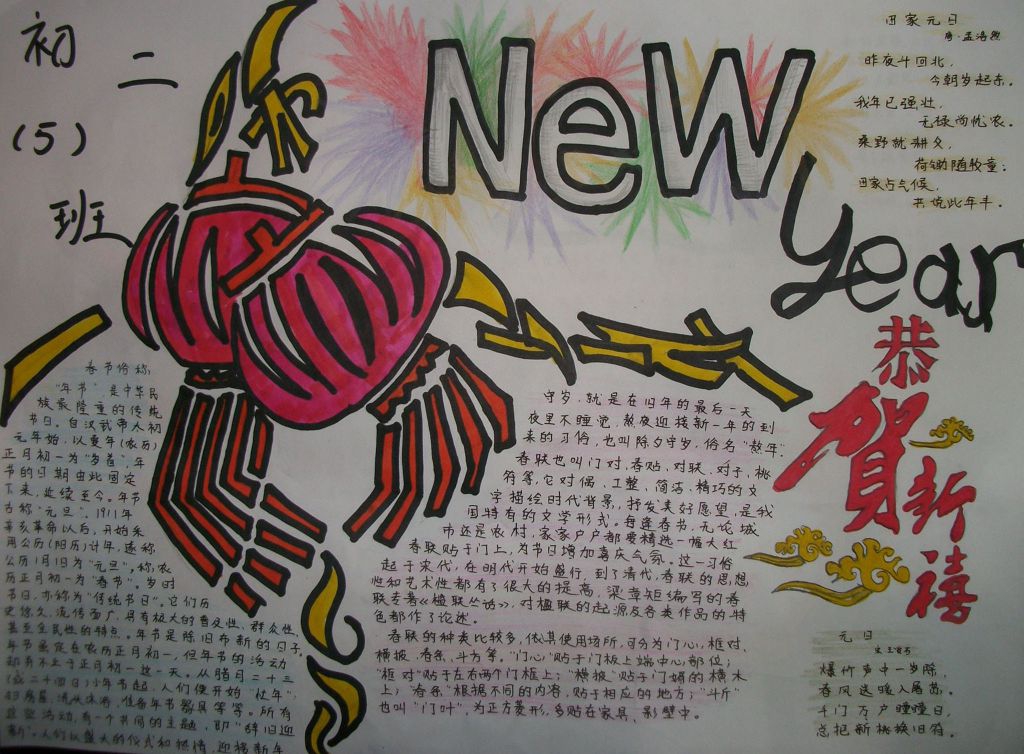 初二
(5)
班
New
Year
恭
贺
新
禧
田家元日
唐·孟浩然
昨夜斗回北,
今朝岁起东。
我年已强壮,
无禄尚忧农。
桑野就耕父,
荷锄随牧童;
田家占气候,
共说此年丰。
春节俗称
“年节”,是中华民
族最隆重的传统
节日。自汉武帝太初
元年始,以夏年(农历)
正月初一为“岁首”,年
节的日期由此固定
下来,延续至今。年节
古称“元旦”。1911年
辛亥革命以后,开始采
用公历(阳历)计年,遂称
公历1月1日为“元旦”,称农
历正月初一为“春节”。岁时
节日,亦称为“传统节日”。它们历
史悠久,流传面广,具有极大的普及性、群众性、
甚至全民性的特点。年节是除旧布新的日子。
年节虽定在农历正月初一,但年节的活动
却并不止于正月初一这一天。从腊月二十三
(或二十四日)小年节起,人们便开始“忙年”:
准备年节器具等等。所有
这些活动,有一个共同的主题,即“辞旧迎
新”。人们以盛大的仪式和热情,迎接新年
守岁,就是在旧年的最后一天
夜里不睡觉,熬夜迎接新一年的到
来的习俗,也叫除夕守岁,俗名“熬年”.
春联也叫门对、春贴、对联、对子、桃
符等,它对偶、工整、简洁、精巧的文
字描绘时代背景,抒发美好愿望,是我
国特有的文学形式。每逢春节,无论城
市还是农村,家家户户都要精选一幅大红
春联贴于门上,为节日增加喜庆气氛。这一习俗
起于宋代,在明代开始盛行,到了清代,春联的思想
性和艺术性都有了很大的提高,梁章矩编写的春
联专著《楹联丛话》,对楹联的起源及各类作品的特
色都作了论述。
春联的种类比较多,依其使用场所,可分为门心、框对、
横披、春条、斗方等。“门心”贴于门板上端中心部位;
“框对”贴于左右两个门框上;“横披”贴于门楣的横木
上;“春条”根据不同的内容,贴于相应的地方;“斗斤”
也叫“门叶”,为正方菱形,多贴在家具、影壁中。
元日
爆竹声中一岁除,
春风送暖入屠苏。
千门万户曈曈日,
总把新桃换旧符。